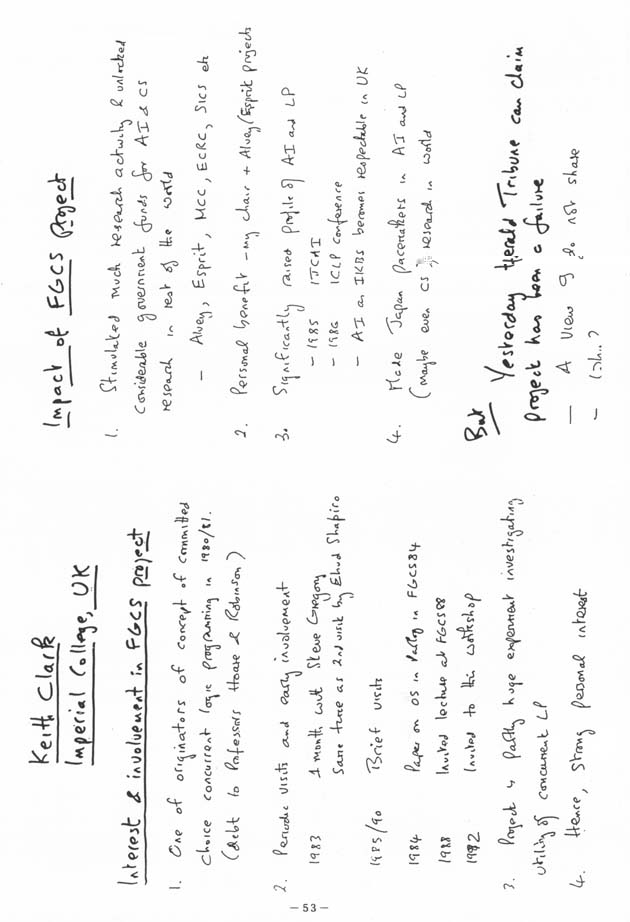 Keith Clark
Imperial College, UK
Interest & involvement in FGCS project
1. One of originators of concept of committed
choice concurrent logic programming in 1980/81.
(debt to Professors Hoare & Robinson)
2. Periodic visits and early involvement
1983 1 month with Steve Gregory
Same time as 2nd visit by Ehud Shapiro
1985/90 Brief visits
1984 Paper on OS in Parlog in FGCS84
1988 Invited lecture at FGCS88
1992 Invited to this workshop
3. Project is partly huge experiment investigating
utility of concurrent LP
4. Hence, strong personal interest
Impact of FGCS Project
1. Stimulated much research activity & unlocked
considerable government funds for AI & CS
research in rest of the world
- Alvey, Esprit, MCC, ECRC, SICS etc
2. Personal benefit - my chair + Alvey/Esprit projects
3. Significantly raised profile of AI and LP
- 1985 IJCAI
- 1986 ICLP conference
- AI as IKBS becomes respectable in UK
4. Made Japan pacemakers in AI and LP
(maybe even CS) research in world
But Yesterday Herald Tribune can claim
project has been a failure
- A view I do not share
- Why?
- 53 -